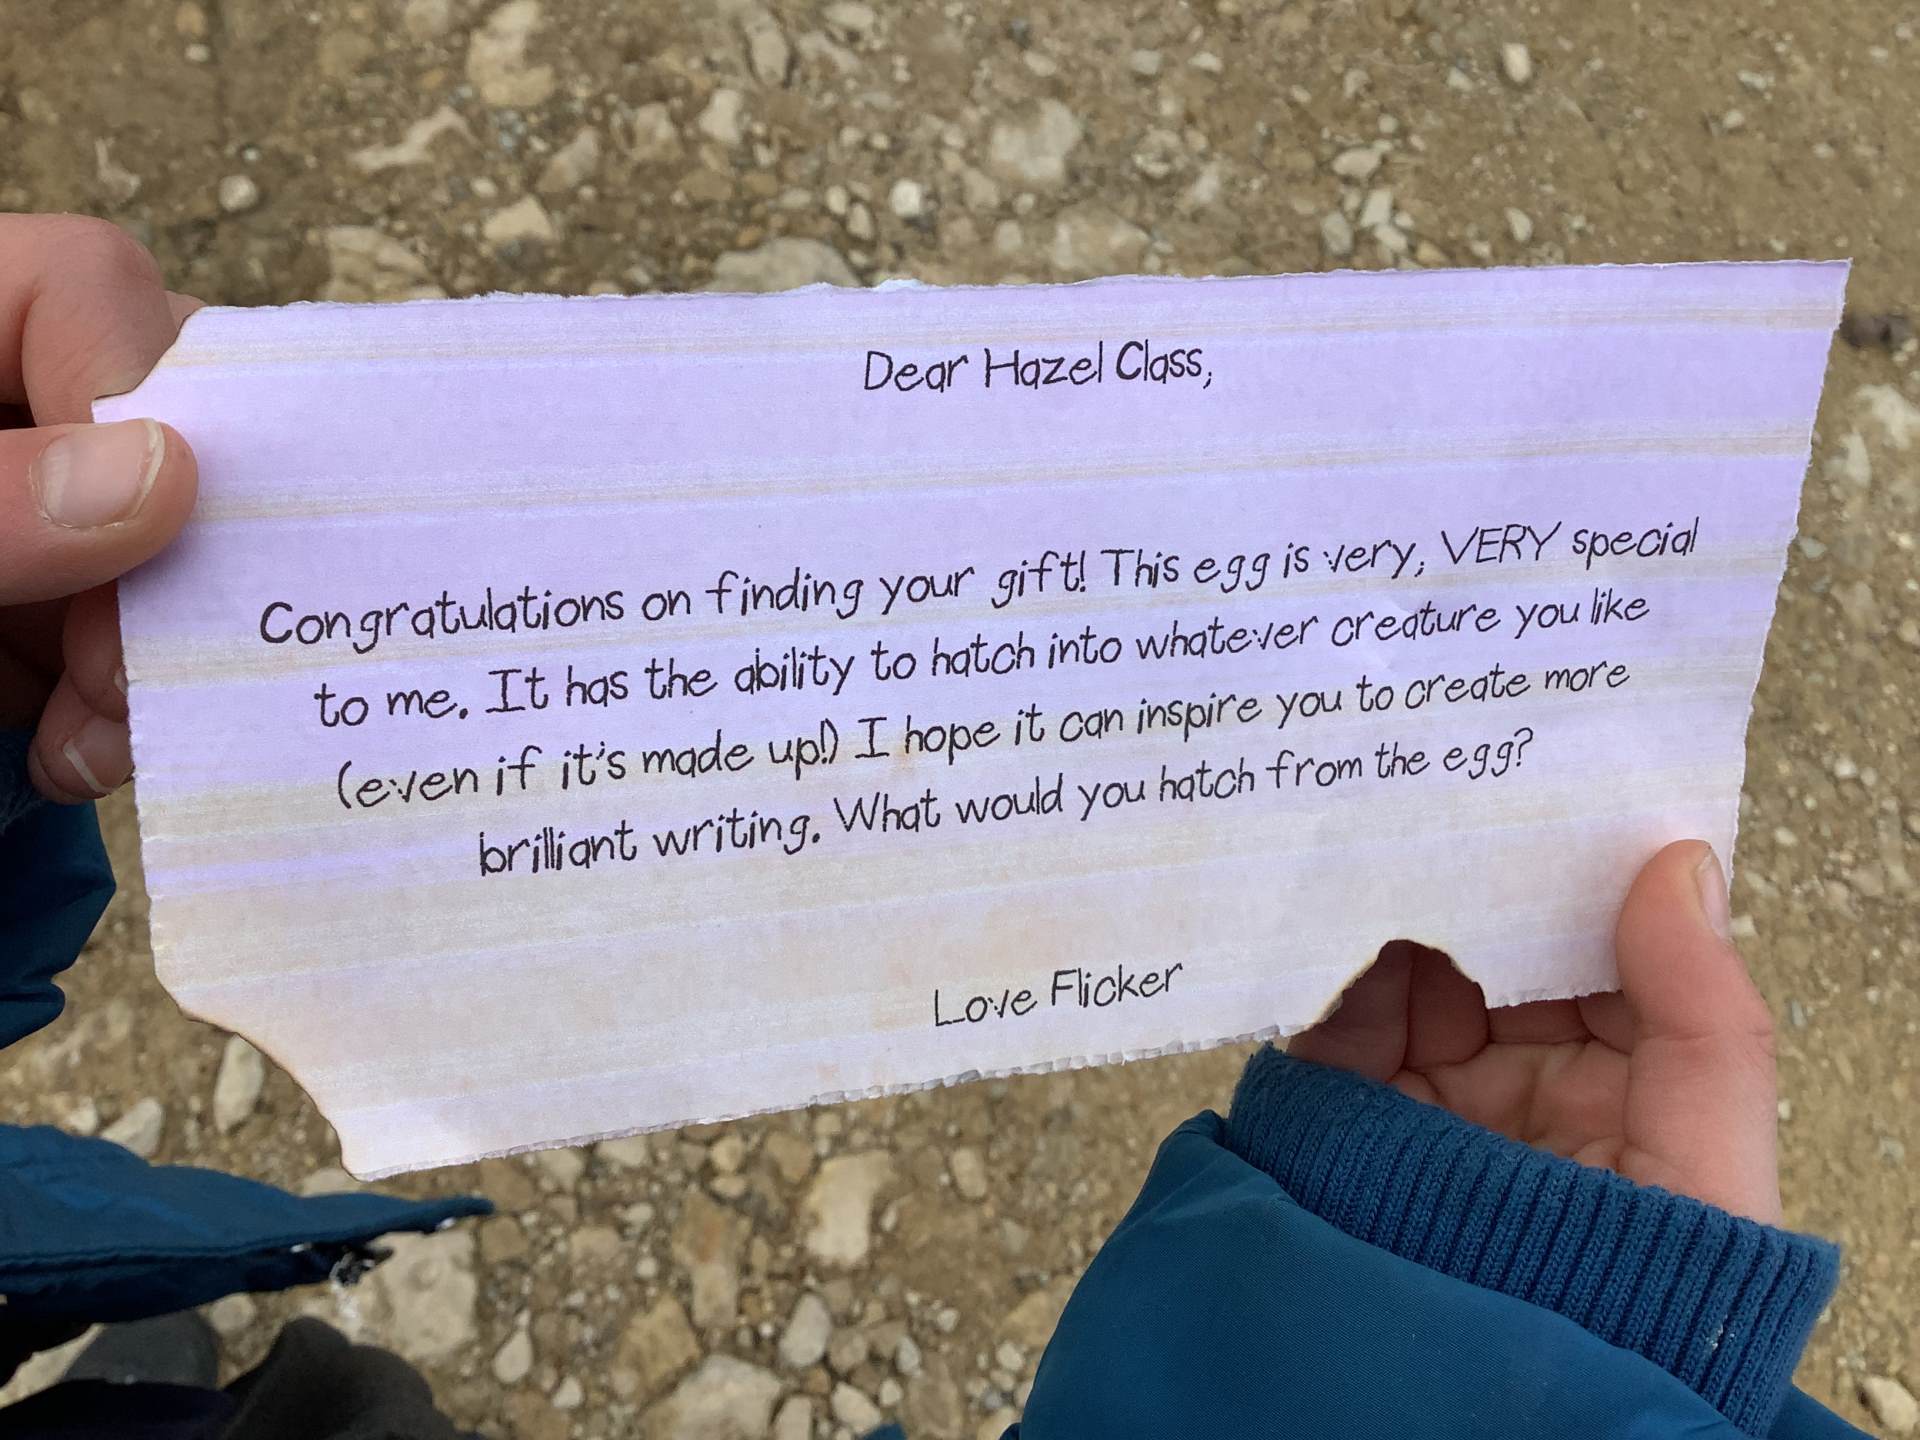 Dear Hazel Class,
Congratulations on finding your gift! This egg is very, VERY special
to me. It has the ability to hatch into whatever creature you like
(even if it's made up!) I hope it can inspire you to create more
brilliant writing. What would you hatch from the egg?
Love Flicker